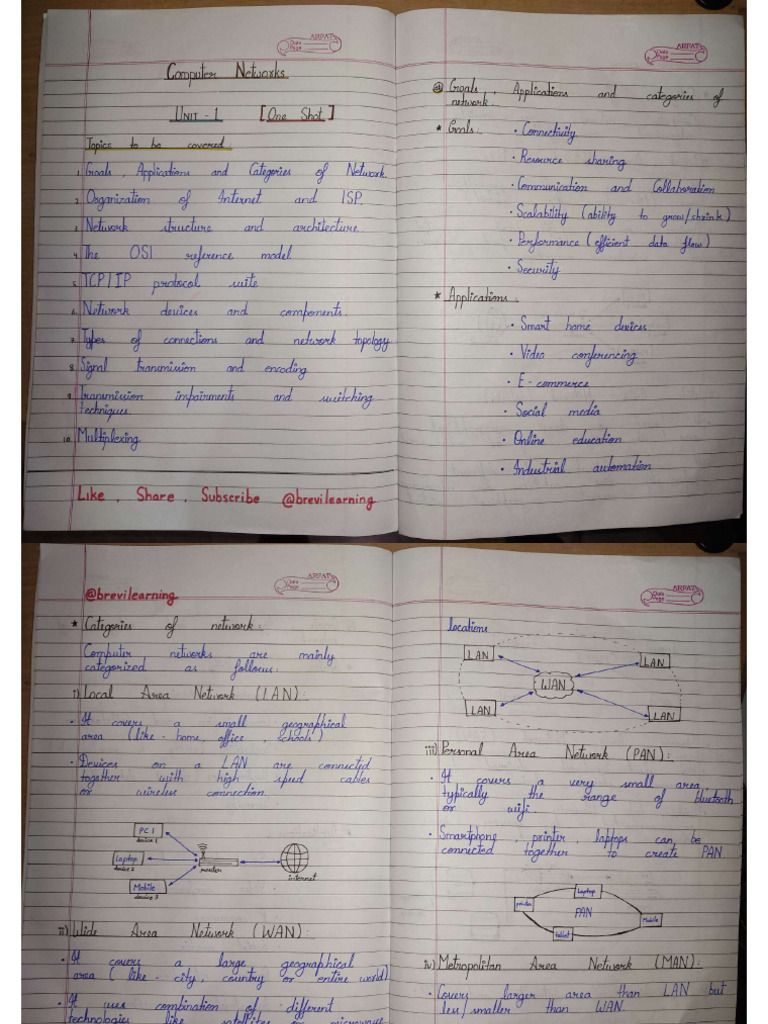 ARPAT
Date
Page
Computer Networks
UNIT - 1 [One Shot]
Topics to be covered
1. Goals, Applications and Categories of Network.
2. Organization of Internet and ISP.
3. Network structure and architecture.
4. The OSI reference model
5. TCP/IP protocol suite
6. Network devices and components.
7. Types of connections and network topology
8. Signal transmission and encoding
9. Transmission impairments and switching
techniques.
10. Multiplexing
Like, Share, Subscribe @brevilearning
ARPAT
Date
Page
Goals, Applications and categories of
network.
* Goals:
• Connectivity
• Resource sharing
• Communication and Collaboration
• Scalability (ability to grow/shrink)
• Performance (efficient data flow)
• Security
* Applications:
• Smart home devices
• Video conferencing
• E-commerce
• Social media
• Online education
• Industrial automation
@brevilearning
ARPAT
Date
Page
* Categories of network:
Computer networks are mainly
categorized as follows:
i) Local Area Network (LAN):
• It covers a small geographical
area (like - home, office, schools)
• Devices on a LAN are connected
together with high speed cables
or wireless connection.
PC 1
device 1
Laptop
device 2
Mobile
device 3
router
internet
ii) Wide Area Network (WAN):
• It covers a large geographical
area (like - city, country or entire world)
• It uses combination of different
technologies like satellites or microwave
ARPAT
Date
Page
locations
LAN
LAN
WAN
LAN
LAN
iii) Personal Area Network (PAN):
• It covers a very small area,
typically the range of bluetooth
or wifi.
• Smartphone, printer, laptops can be
connected together to create PAN.
Laptop
printer
PAN
Mobile
tablet
iv) Metropolitan Area Network (MAN):
• Covers larger area than LAN but
less/smaller than WAN.